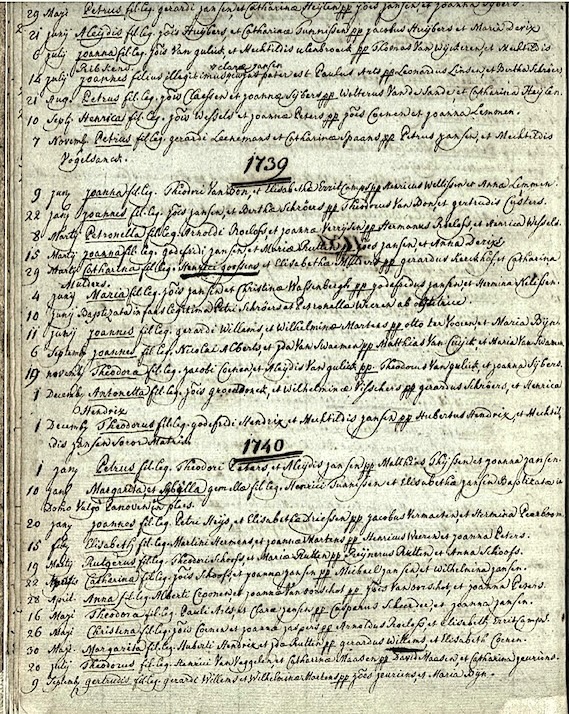 29 Maji Petrus fil: leg: gerardi jansen et Catharina Heijlen pp jois jansen et joanna
21 junij Aleijdis fil: leg: jois Huijbers et Catharina Tunnissen pp jacobus Huijbers et Maria Derix
6 julij joanna fil: leg: jois Van gulick et Mechtildis pp Thomas Van et Mechtildis
Ribbkens. clara jansen
14 julij joannes filius illegitimus pater est Paulus Arts pp Leonardus Linsen, et Bertha Schröers
21 Aug. Petrus fil: leg: jois Claessen et joanna Sijbers pp Wolterus Van de Sande et Catharina Heijlen.
10 Septb. Henrica fil: leg: jois Wessels et joanna Peters pp jois Coenen et joanna Lemmen.
7 Novemb. Petrus fil: leg: gerardi Leenemans et Catharina Spaans pp Petrus jansen, et Mechtildis
Vogelsanck.
1739
9 janij joanna fil: leg: Theodori Van Don, et Elisabetha pp Henricus Willissen et Anna Lemmen.
22 janij joannes fil: leg: jois jansen, et Bertha Schröers pp Theodorus Van Don, et gertrudis Custers.
8 Martij Petronella fil: leg: Arnoldi Roelofs, et joanna Verrijsen pp Hermanus Roelofs, et Henrica Wessels.
15 Martij joanna fil: leg: godefridi jansen, et Maria Rutten jois jansen, et Anna Derix
29 Martij Catharina fil: leg: Henrici goossens et Elisabetha pp gerardus Kerckhof, et Catharina
Mulders.
4 junij Maria fil: leg: jois jansen et Christina Wassenbergh pp godefridus jansen, et Hermina Nelissen.
10 junij Baptizata infans legitima Petri Schröers et Petronella Weeren ab obstetrice
11 junij joannes fil: leg: gerardi Willems, et Wilhelmina Martens pp otto ter Voeren, et Maria Bijn.
6 Septemb joannes fil: leg: Nicolai Alberts, et jda Van Swamen pp Matthias Van Cuijck et Maria Van Swamen
19 novemb Theodora fil: leg: jacobi Coenen, et Aleijdis Van gulick pp. Theodorus Van gulick et joanna Sijbers.
1 Decemb Antonella fil: leg: jois groenendonck, et Wilhelmina Visschers pp gerardus Schröers, et Henrica
Hendrix
1 Decemb Theodorus fil: leg: godefridi Hendrix, et Mechtildis jansen pp Hubertus Hendrix, et Mechtil,
dis jansen Soror Matris
1740
1 janij Petrus fil: leg: Theodori Peters et Aleijdis jansen pp Matthias Thijssen et joanna jansen.
10 janij Margarita et Sibilla gemella fil: leg: Henrici Tunnissen et Elisabetha jansen Baptizata in
Domo Vulgo
20 janij joannes fil: leg: Petri Heijs, et Elisabetha Driessen pp jacobus Vermasen, et Hermina Peerboom.
15 Elisabeth fil: leg: Martini Hermens et joanna Martens pp Henricus Weeren et joanna Peters.
19 Martij Rutgerus fil: leg: Theodori Schoofs, et Maria Rutten pp Reijnerus Rutten et Anna Schoofs.
22 Aprilis Catharina fil: leg: jois Schoofs, et joanna jansen pp Michael jansen, et Wilhelmina jansen.
28 April. Anna fil: leg: Alberti Copoenen, et joanna Van oorschot pp jois Van oorschot, et joanna Peters.
16 Maji Theodora fil: leg: Pauli Arts, et Clara jansen pp Casparus Schorder, et joanna jansen.
26 Maji Christina fil: leg: jois Coenen, et joanna jaspers pp Arnoldus Roelofs et Elisabeth
30 Maji. Margarita fil: leg: Huberti Hendrix, et jda Rutten pp gerardus Willems, et Elisabeth Coenen.
20 julij Theodorus fil: leg: Henrici Van Voggelen, et Catharina Maassen pp David Maassen, et Catharina jeuriens.
9 Septemb gertrudis fil: leg: gerardi Willems, et Wilhelmina Martens pp jois jeuriens, et Maria Bijn.